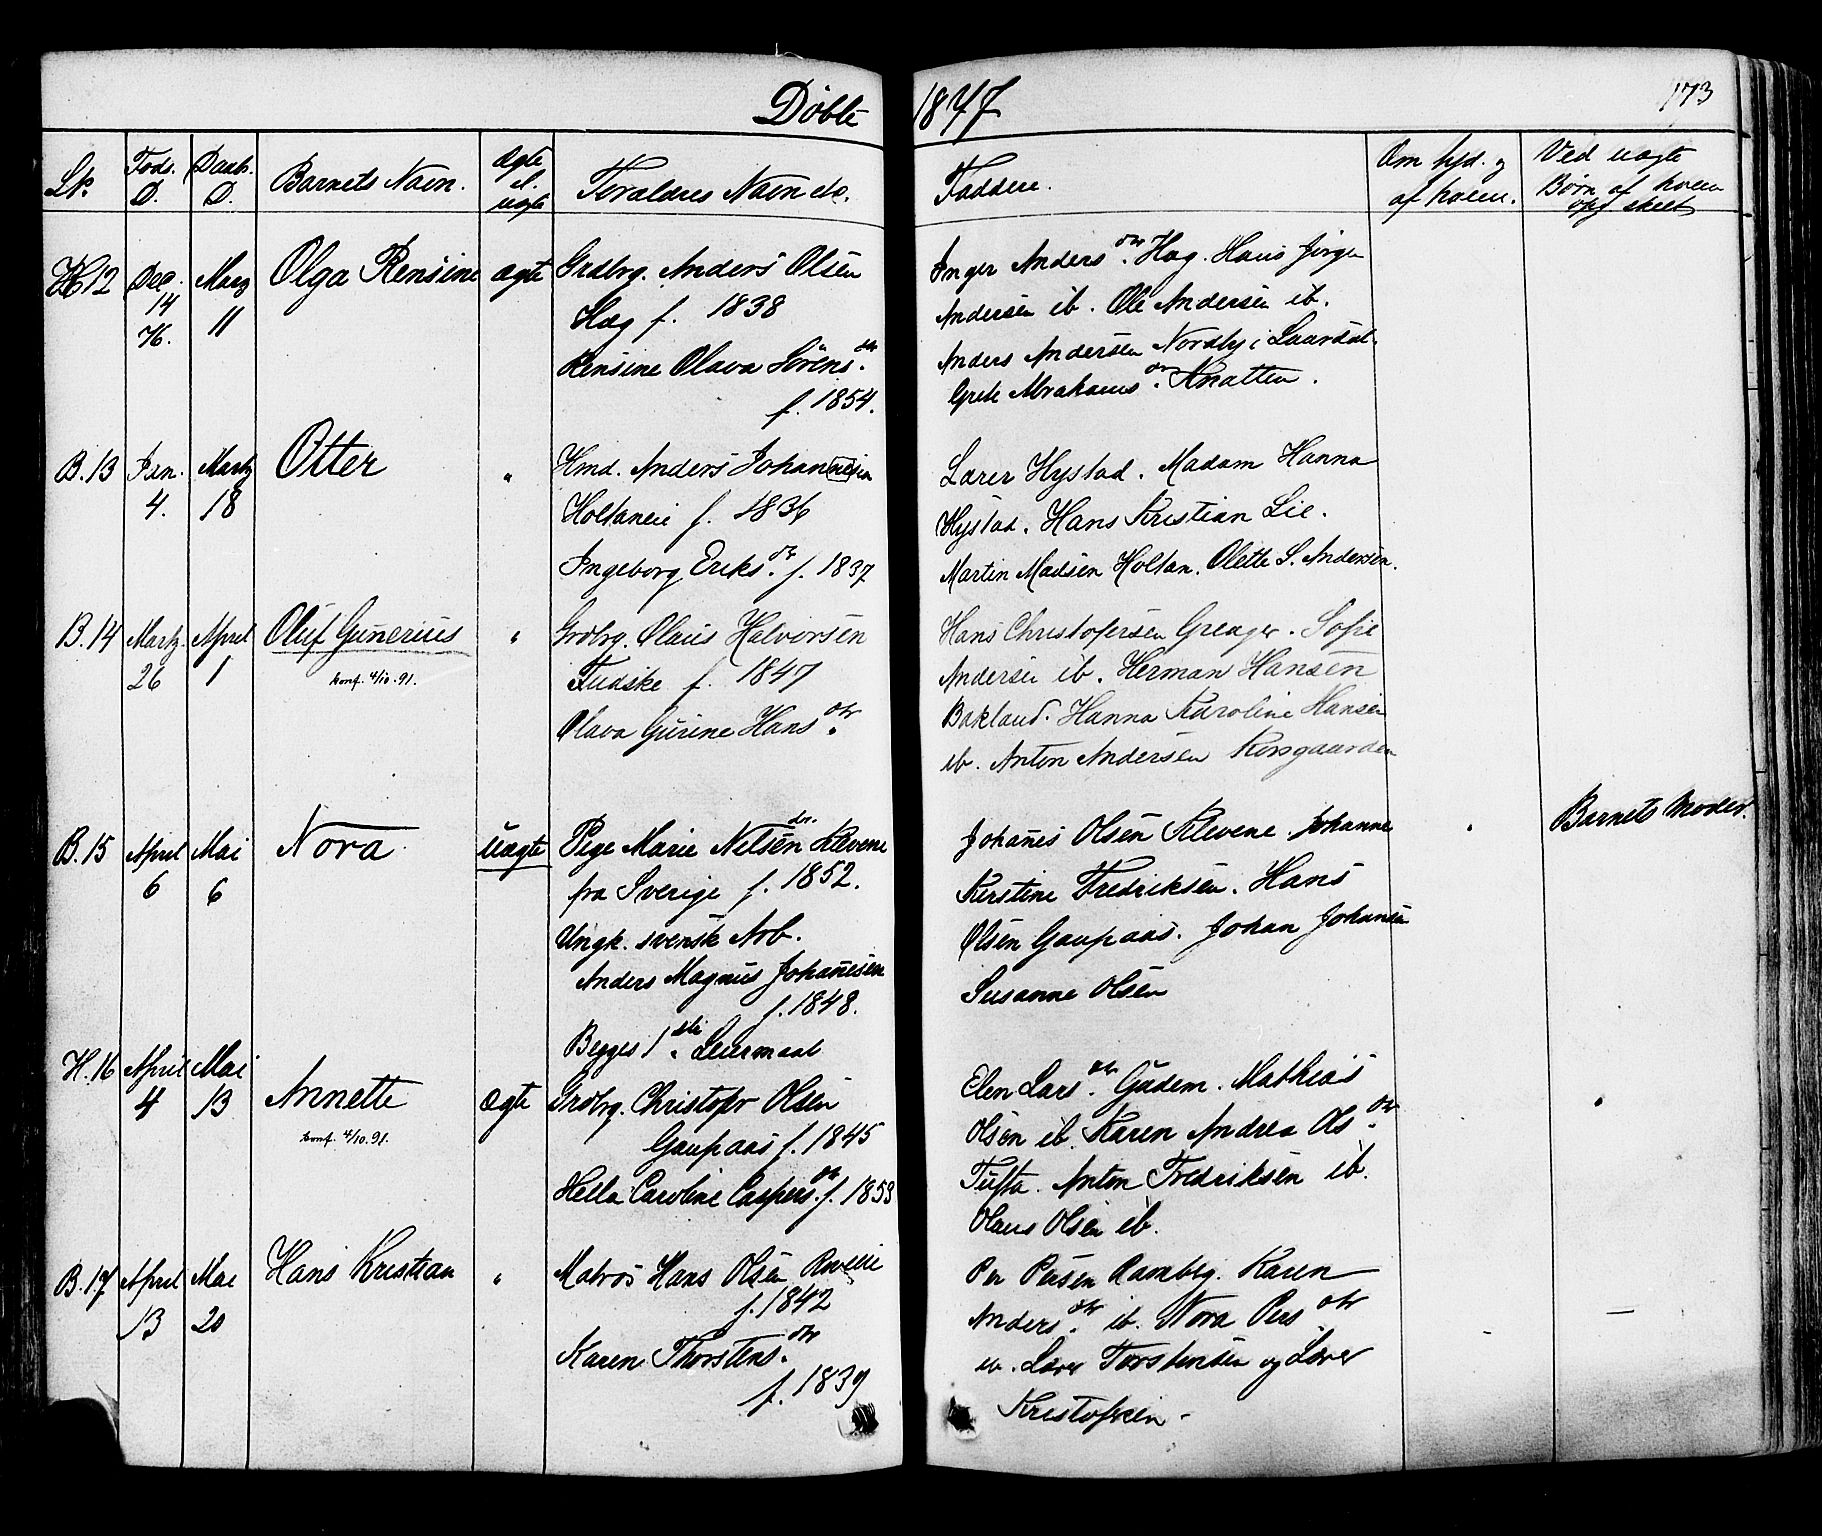 Døbte 1877
173
Lb. Føds. D. Daab. D. Barnets Navn. ægte el. uægte Forældres Navn etc. Faddere. Om hjd. og af hvem. Ved uægte Børn af hvem opg skeet
H 12 Dec 14 76. Marz 11 Olga Rensine ægte
Grdbrg. Anders Olsen
Hæg f. 1838
Rensine Olava Sörens dtr.
f. 1854.
Inger Anders dtr. Hæg. Hans Jörgen
Andersen ib. Ole Andersen ib.
Anders Andersen Nordby i Laurdal.
Grete Abrahams dtr. Knatten.
B. 13 Jan. 4. Martz 18 Otter "
Hmd. Anders Johannesen
Holtaneie f. 1836
Ingeborg Eriks dtr. f. 1837
Lærer Hystad. Madam Hanna
Hystad. Hans Kristian Lie.
Martin Madsen Holtan. Olette S. Andersen.
B. 14 Martz 26 April 1 Oluf Gunerius "
konf. 4/10.91.
Grdbrg. Olaus Halvorsen
Fudske f. 1847
Olava Gurine Hans dtr.
Hans Christofersen Greager. Sofie
Andersen ib. Herman Hansen
Bakland. Hanna Karoline Hansen
ib. Anton Andersen Korsgaarden
B. 15 April 6 Mai 6 Nora uægte
Pige Marie Nilsen dr. Klevene
fra Sverige f. 1852.
Ungk. svensk Arb.
Anders Magnus Johanesen
f. 1848.
Begges 1ste Leiermaal
Johanes Olsen Klevene. Johanne
Kirstine Fredriksen. Hans
Olsen Gaupaas. Johan Johansen
Susanne Olsen
Barnets Moder.
H. 16 April 4 Mai 13 Annette ægte
konf. 4/10.91.
Grdbrg. Christofer Olsen
Gaupaas f. 1845
Hella Caroline Caspers dtr. f. 1853
Elen Lars dtr. Gudem. Mathias
Olsen ib. Karen Andrea Ols dtr.
Tufta. Anton Fredriksen ib.
Olaus Olsen ib.
B. 17 April 13 Mai 20 Hans Kristian "
Matros Hans Olsen
f. 1842
Karen Thorstens. dtr
f. 1839
Per Persen Ramberg. Karen
Anders dtr. ib. Nora Pers dtr
ib. Lars Torstensen og Lærer
Kristofsen -